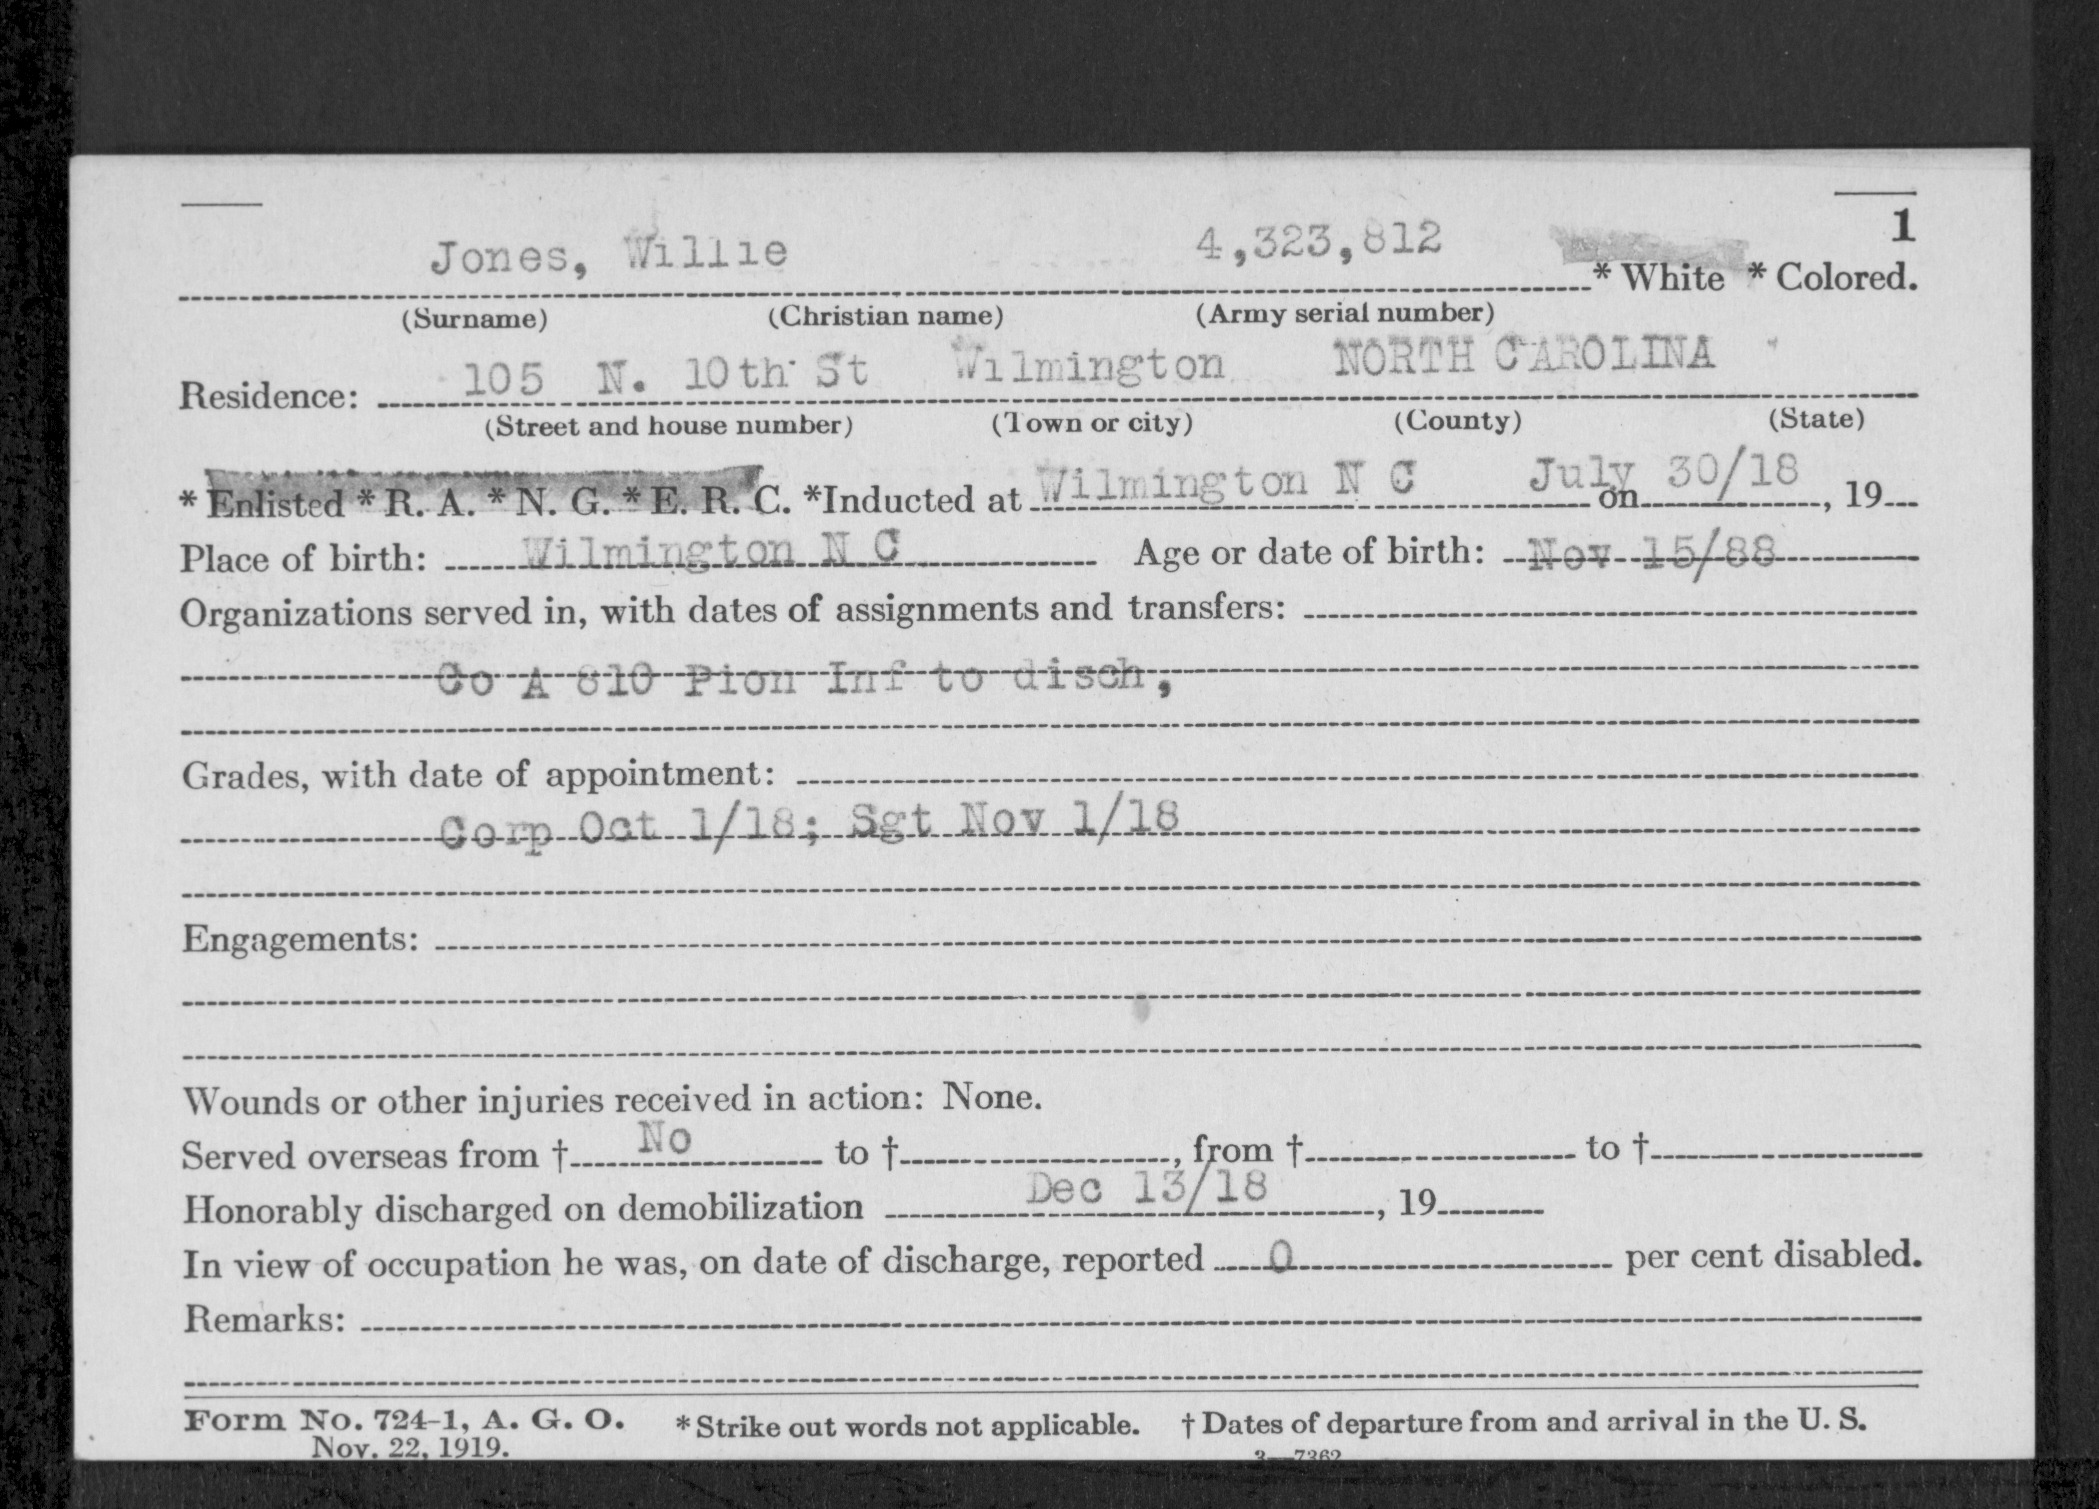 1
Jones, Willie 4,323,812 * White * Colored.
(Surname) (Christian name) (Army serial number)
Residence: 105 N. 10th St Wilmington NORTH CAROLINA
(Street and house number) (Town or city) (County) (State)
* Enlisted * R. A. * N. G. * E. R. C. *Inducted at Wilmington N C on July 30/18, 19
Place of birth: Wilmington N C Age or date of birth: Nov 15/88
Organizations served in, with dates of assignments and transfers:
Co A 810 Pion Inf to disch,
Grades, with date of appointment:
Corp Oct 1/18; Sgt Nov 1/18
Engagements:
Wounds or other injuries received in action: None.
Served overseas from † No to †, from † to †
Honorably discharged on demobilization Dec 13/18, 19
In view of occupation he was, on date of discharge, reported 0 per cent disabled.
Remarks:
Form No. 724-1, A. G. O. * Strike out words not applicable. † Dates of departure from and arrival in the U. S.
Nov. 22, 1919. 3—7362